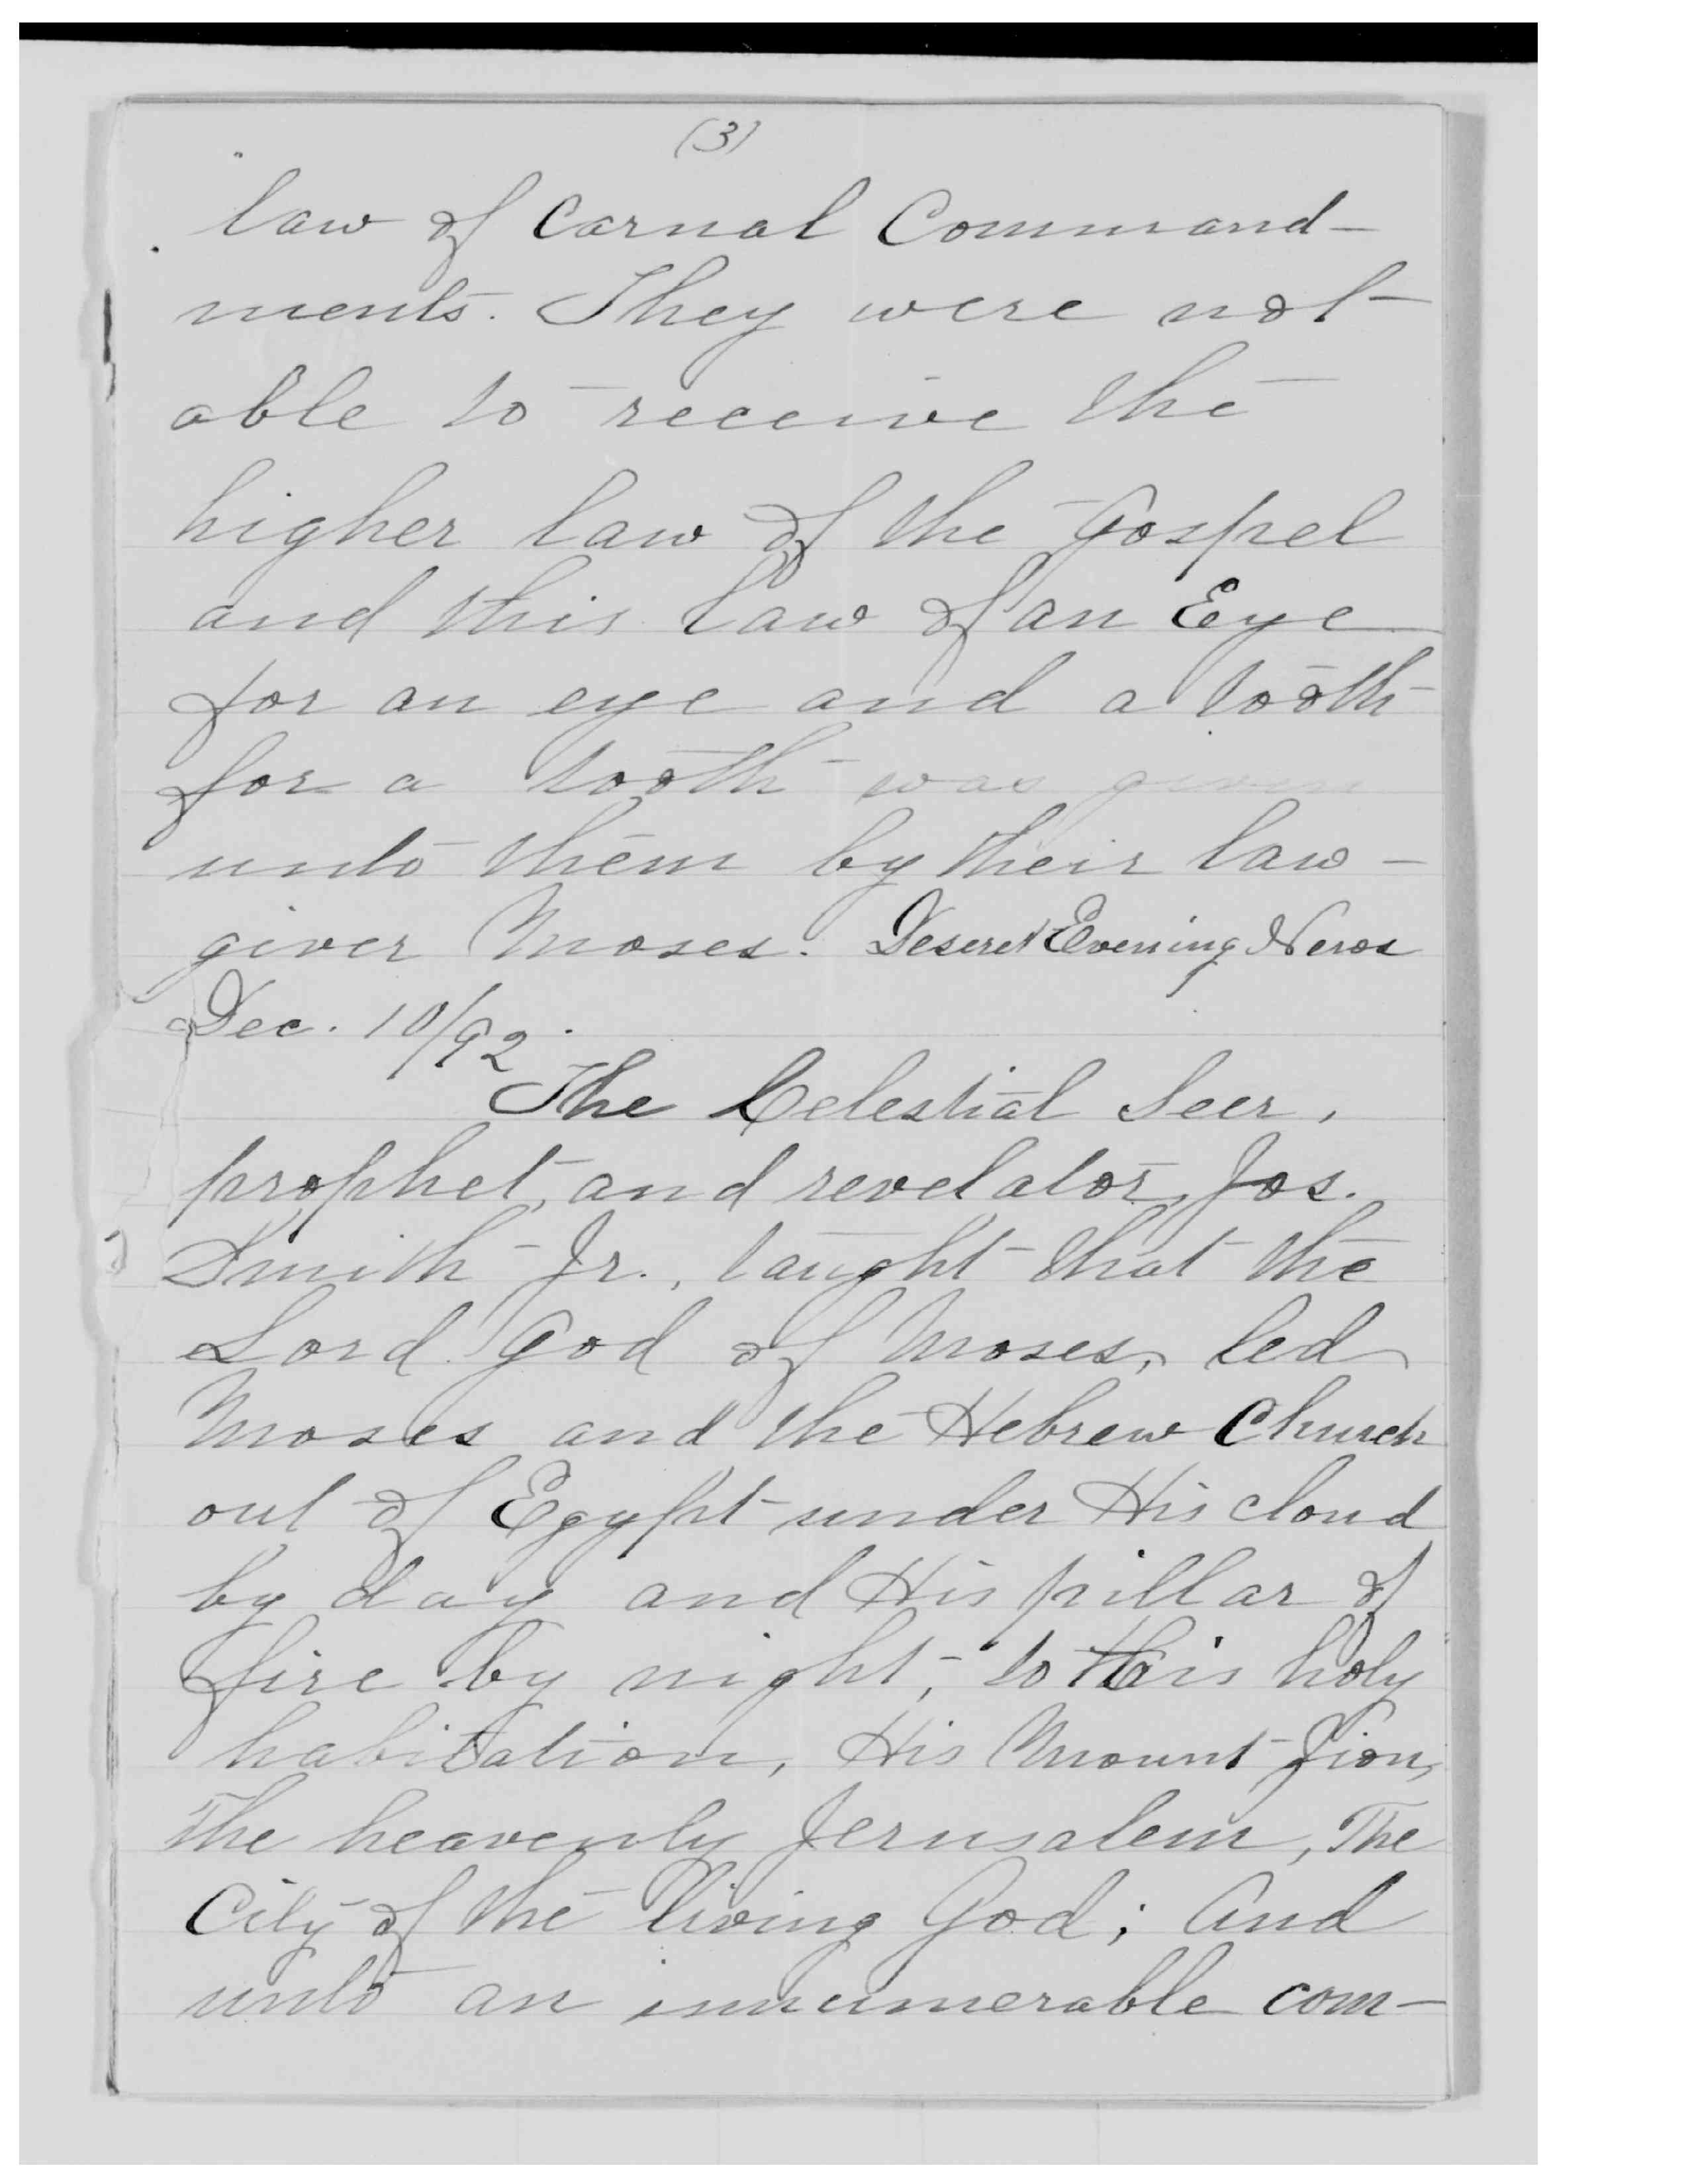 (3)
law of Carnal Command-
ments. They were not
able to receive the
higher law of the Gospel
and this law of an Eye
for an eye and a tooth
for a tooth was given
unto them by their law-
giver Moses. Deseret Evening News
Dec. 10/92.
The Celestial Seer,
prophet, and revelator, Jos.
Smith Jr., taught that the
Lord God of Moses, led
Moses and the Hebrew Church
out of Egypt under His cloud
by day and His pillar of
fire by night, to His holy
habitation, His Mount Zion,
The heavenly Jerusalem, The
City of the living God; And
unto an innumerable com-